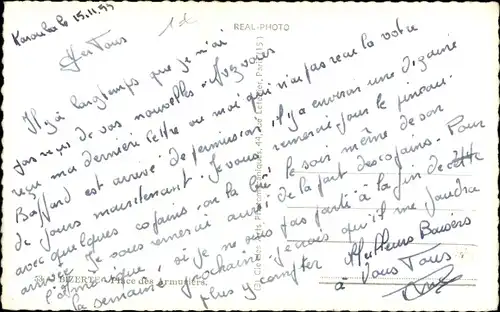 Karouba le 15.11.55
1d
REAL-PHOTO
Chers Tous
Il y a longtemps que je n'ai
pas reçu de vos nouvelles. Avez vous
reçu ma dernière lettre ou moi qui n'ai pas reçu la votre
Baffard est arrivé de permission, il y a environ une dizaine
de jours maintenant. Je vous remercie pour le pineau.
avec quelques copains, on l'a bu le soir même de son
arrivé. Je vous remercie aussi de la part des copains. Pour
l'atmosphère, si je ne suis pas parti à la fin de cette
la semaine prochaine, je crois qu'il me faudra
plus y compter
Meilleurs Baisers
à Vous Tous
BIZERTE. Place des Armuriers.